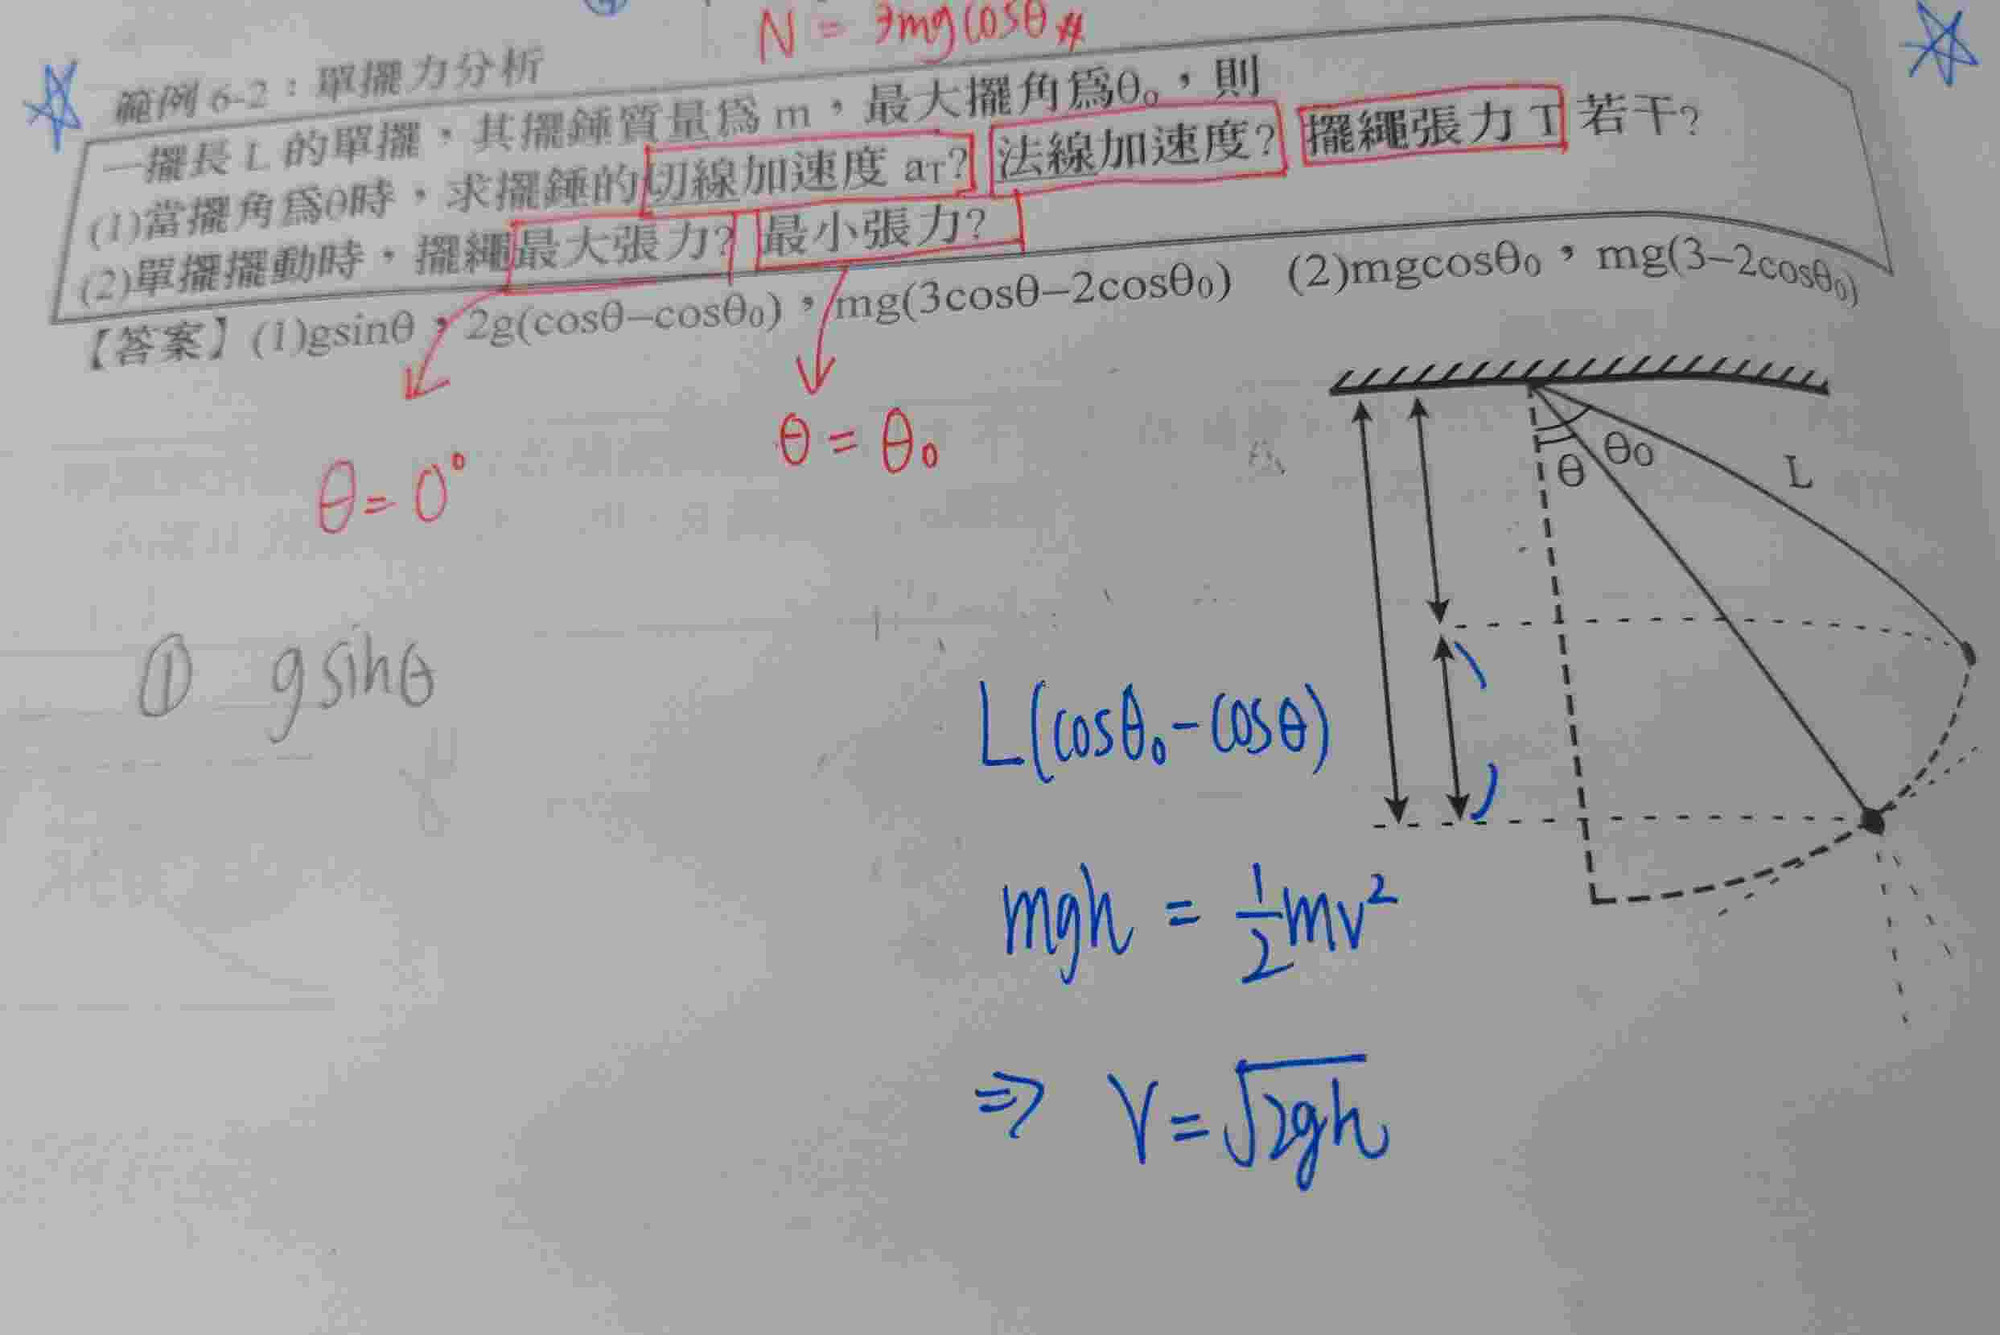 N = 3mgcosθ #
範例 6-2：單擺力分析
一擺長 L 的單擺，其擺錘質量為 m，最大擺角為θ₀，則
(1)當擺角為θ時，求擺錘的切線加速度 aT? 法線加速度? 擺繩張力 T 若干?
(2)單擺擺動時，擺繩最大張力? 最小張力?
【答案】(1)gsinθ，2g(cosθ−cosθ₀)，mg(3cosθ−2cosθ₀) (2)mgcosθ₀，mg(3−2cosθ₀)
θ = 0°
θ = θ₀
θ
θ₀
L
① gsinθ
L(cosθ₀-cosθ)
mgh = 1/2 mv²
⇒ V = √2gh